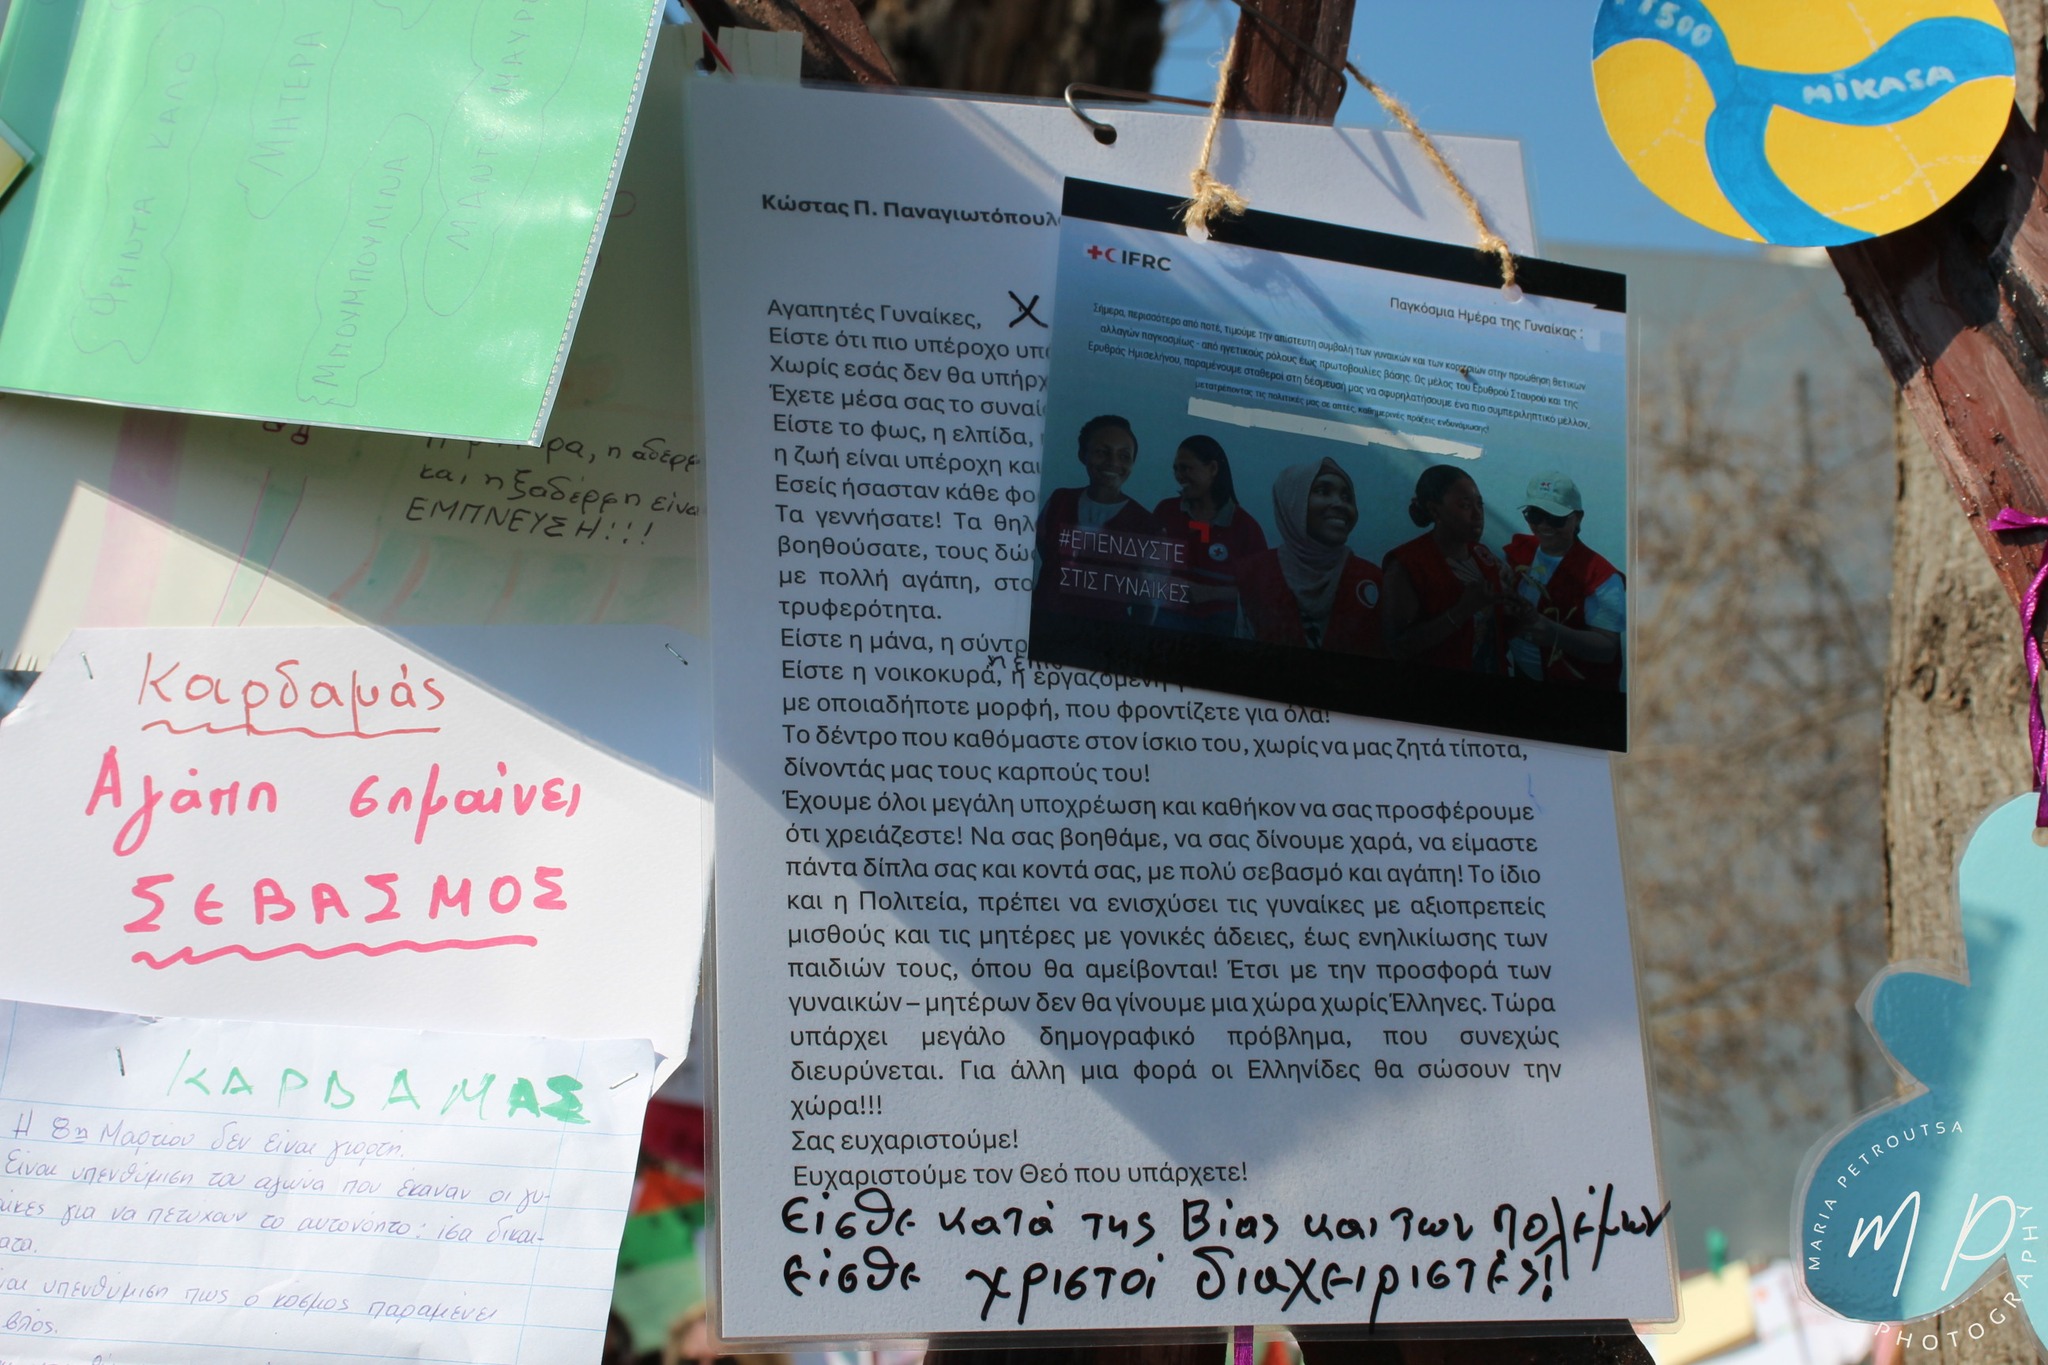 ΦΡΙΝΤΑ ΚΑΛΟ
ΜΗΤΕΡΑ
ΜΠΟΥΜΠΟΥΛΙΝΑ
ΜΑΝΤ ΜΑΥΡΟ
η αδερφ
και η ξαδέρφη είναι
ΕΜΠΝΕΥΣΗ!!!
Καρδαμάς
Αγάπη σημαίνει
ΣΕΒΑΣΜΟΣ
ΚΑΡΔΑΜΑΣ
Η 8η Μαρτίου δεν είναι γιορτή.
Είναι υπενθύμιση του αγώνα που έκαναν οι γυ-
αίκες για να πετύχουν το αυτονόητο: ίσα δικαι-
ατα.
υπενθύμιση πως ο κόσμος παραμένει
Κώστας Π. Παναγιωτόπουλο
Αγαπητές Γυναίκες, Χ
Είστε ότι πιο υπέροχο υπ
Χωρίς εσάς δεν θα υπήρχ
Έχετε μέσα σας το συναί
Είστε το φως, η ελπίδα,
η ζωή είναι υπέροχη και
Εσείς ήσασταν κάθε φο
Τα γεννήσατε! Τα θηλ
βοηθούσατε, τους δώ
με πολλή αγάπη, στο
τρυφερότητα.
Είστε η μάνα, η σύντρ
Είστε η νοικοκυρά, η εργαζόμενη
με οποιαδήποτε μορφή, που φροντίζετε για όλα!
Το δέντρο που καθόμαστε στον ίσκιο του, χωρίς να μας ζητά τίποτα,
δίνοντάς μας τους καρπούς του!
Έχουμε όλοι μεγάλη υποχρέωση και καθήκον να σας προσφέρουμε
ότι χρειάζεστε! Να σας βοηθάμε, να σας δίνουμε χαρά, να είμαστε
πάντα δίπλα σας και κοντά σας, με πολύ σεβασμό και αγάπη! Το ίδιο
και η Πολιτεία, πρέπει να ενισχύσει τις γυναίκες με αξιοπρεπείς
μισθούς και τις μητέρες με γονικές άδειες, έως ενηλικίωσης των
παιδιών τους, όπου θα αμείβονται! Έτσι με την προσφορά των
γυναικών – μητέρων δεν θα γίνουμε μια χώρα χωρίς Έλληνες. Τώρα
υπάρχει μεγάλο δημογραφικό πρόβλημα, που συνεχώς
διευρύνεται. Για άλλη μια φορά οι Ελληνίδες θα σώσουν την
χώρα!!!
Σας ευχαριστούμε!
Ευχαριστούμε τον Θεό που υπάρχετε!
Είσθε κατά της Βίας και των πολέμων
είσθε χρηστοί διαχειριστές!
IFRC
Παγκόσμια Ημέρα της Γυναίκας :
Σήμερα, περισσότερο από ποτέ, τιμούμε την απίστευτη συμβολή των γυναικών και των κοριτσιών στην προώθηση θετικών
αλλαγών παγκοσμίως - από ηγετικούς ρόλους έως πρωτοβουλίες βάσης. Ως μέλος του Ερυθρού Σταυρού και της
Ερυθράς Ημισελήνου, παραμένουμε σταθεροί στη δέσμευσή μας να σφυρηλατήσουμε ένα πιο συμπεριληπτικό μέλλον,
μετατρέποντας τις πολιτικές μας σε απτές, καθημερινές πράξεις ενδυνάμωσης!
#ΕΠΕΝΔΥΣΤΕ
ΣΤΙΣ ΓΥΝΑΙΚΕΣ
1500
MIKASA
MARIA PETROUTSA
mp
PHOTOGRAPHY